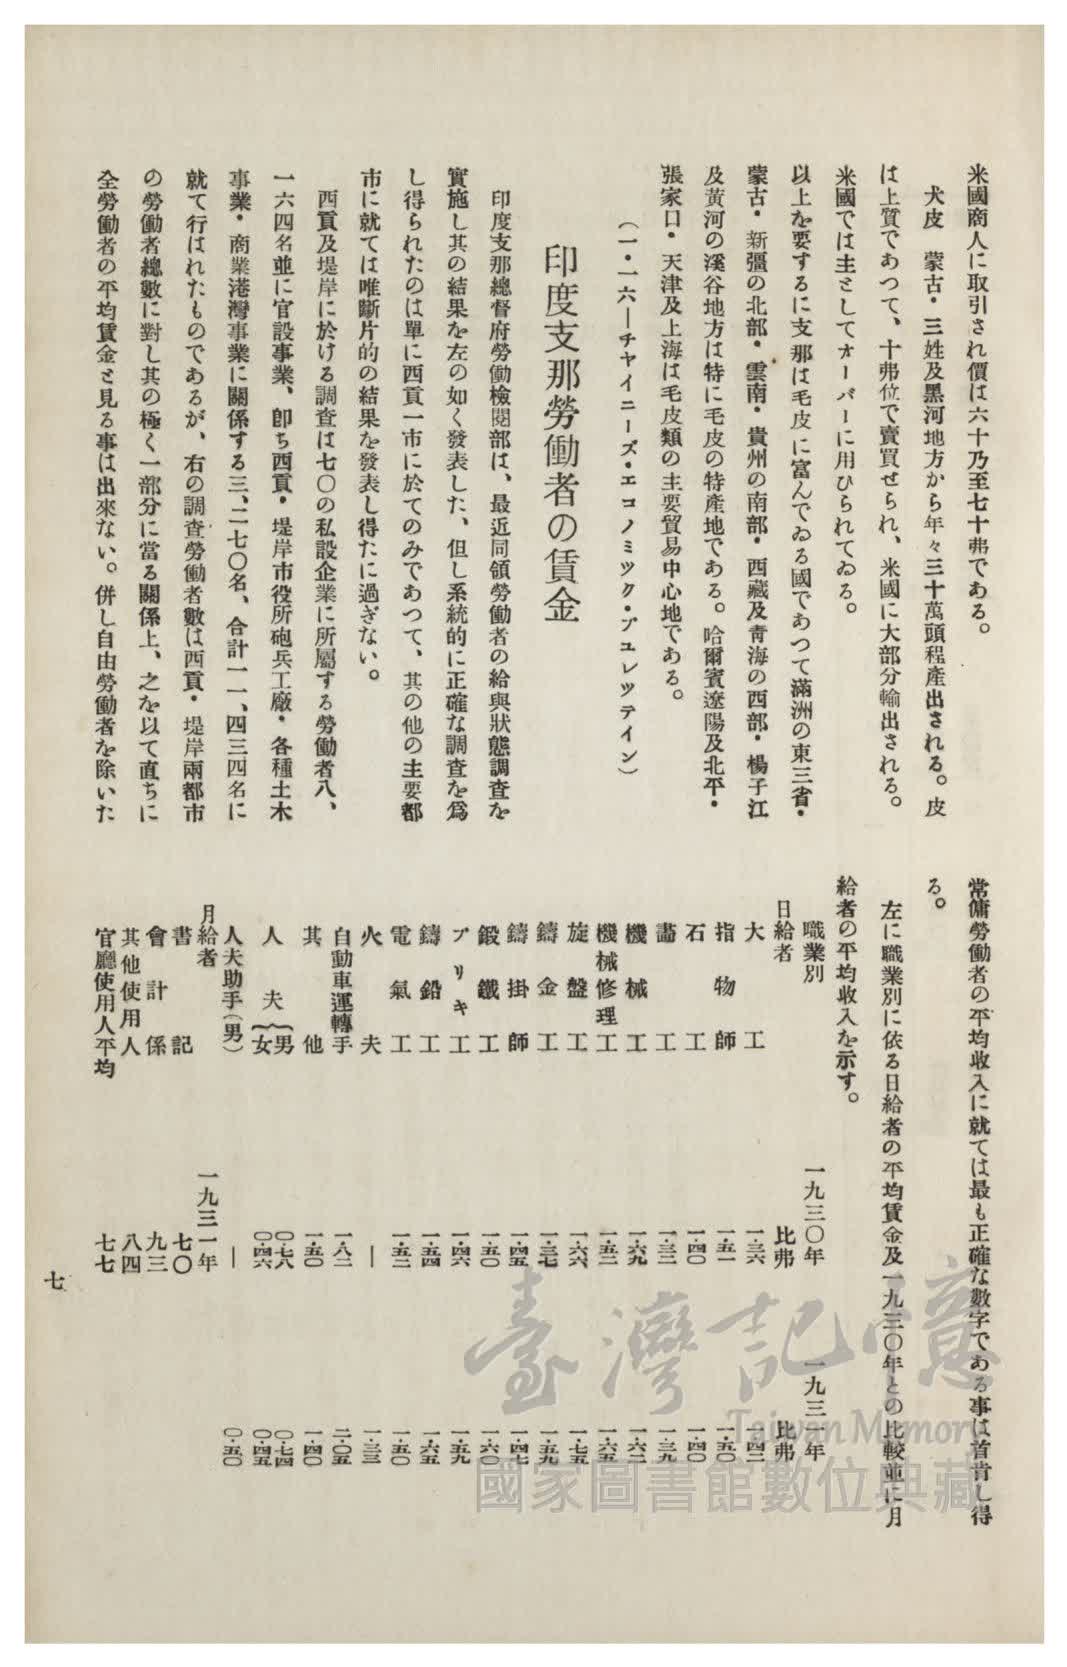 米國商人に取引され價は六十乃至七十弗である。
犬皮　蒙古・三姓及黑河地方から年々三十萬頭程產出される。皮
は上質であつて、十弗位で賣買せられ、米國に大部分輸出される。
米國では主としてオーバーに用ひられてゐる。
以上を要するに支那は毛皮に富んでゐる國であつて滿洲の東三省・
蒙古・新彊の北部・雲南・貴州の南部・西藏及靑海の西部・楊子江
及黃河の溪谷地方は特に毛皮の特產地である。哈爾賓遼陽及北平・
張家口・天津及上海は毛皮類の主要貿易中心地である。
（一・一六—チヤイニーズ・エコノミツク・ブユレツテイン）
印度支那勞働者の賃金
印度支那總督府勞働檢閱部は、最近同領勞働者の給與狀態調査を
實施し其の結果を左の如く發表した、但し系統的に正確な調査を爲
し得られたのは單に西貢一市に於てのみであつて、其の他の主要都
市に就ては唯斷片的の結果を發表し得たに過ぎない。
西貢及堤岸に於ける調査は七〇の私設企業に所屬する勞働者八、
一六四名並に官設事業、卽ち西貢・堤岸市役所砲兵工廠・各種土木
事業・商業港灣事業に關係する三、二七〇名、合計一一、四三四名に
就て行はれたものであるが、右の調査勞働者數は西貢・堤岸兩都市
の勞働者總數に對し其の極く一部分に當る關係上、之を以て直ちに
全勞働者の平均賃金と見る事は出來ない。併し自由勞働者を除いた
常傭勞働者の平均收入に就ては最も正確な數字である事は首肯し得
る。
左に職業別に依る日給者の平均賃金及一九三〇年との比較並に月
給者の平均收入を示す。
職業別　一九三〇年　一九三一年
日給者　比弗　比弗
大工　一・三六　一・四二
指物師　一・五一　一・五〇
石工　一・四〇　一・四〇
畵工　一・三二　一・三九
機械工　一・六九　一・六二
機械修理工　一・五二　一・六五
旋盤工　一・六六　一・七五
鑄金工　一・三七　一・五九
鑄掛師　一・四五　一・四七
鍛鐵工　一・五〇　一・六〇
ブリキ工　一・四六　一・五九
鑄鉛工　一・五四　一・六五
電氣工　一・五二　一・五〇
火夫　—　一・三三
自動車運轉手　一・八二　二・〇五
其他　一・五〇　一・四〇
人夫{男　〇・七八　〇・七四
女　〇・四六　〇・四五
人夫助手（男）　—　〇・五〇
月給者　一九三一年
書記　七〇
會計係　九三
其他使用人　八四
官廳使用人平均　七七
七
臺灣記憶
Taiwan Memory
國家圖書館數位典藏